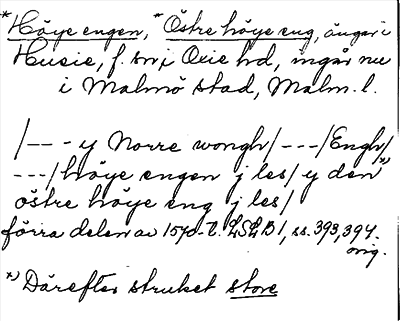 *Höye engen, *Östre höye eng, ängar i
Husie, f. sn, i Oxie hd, ingår nu
i Malmö stad, Malm. l.
/--- y Norre wongh/---/Engh/
---/höye engen j les/ y den*)
östre höye eng j les/
förra delen av 1570-t. LSLB 1, ss. 393, 394.
orig.
*) Därefter struket store